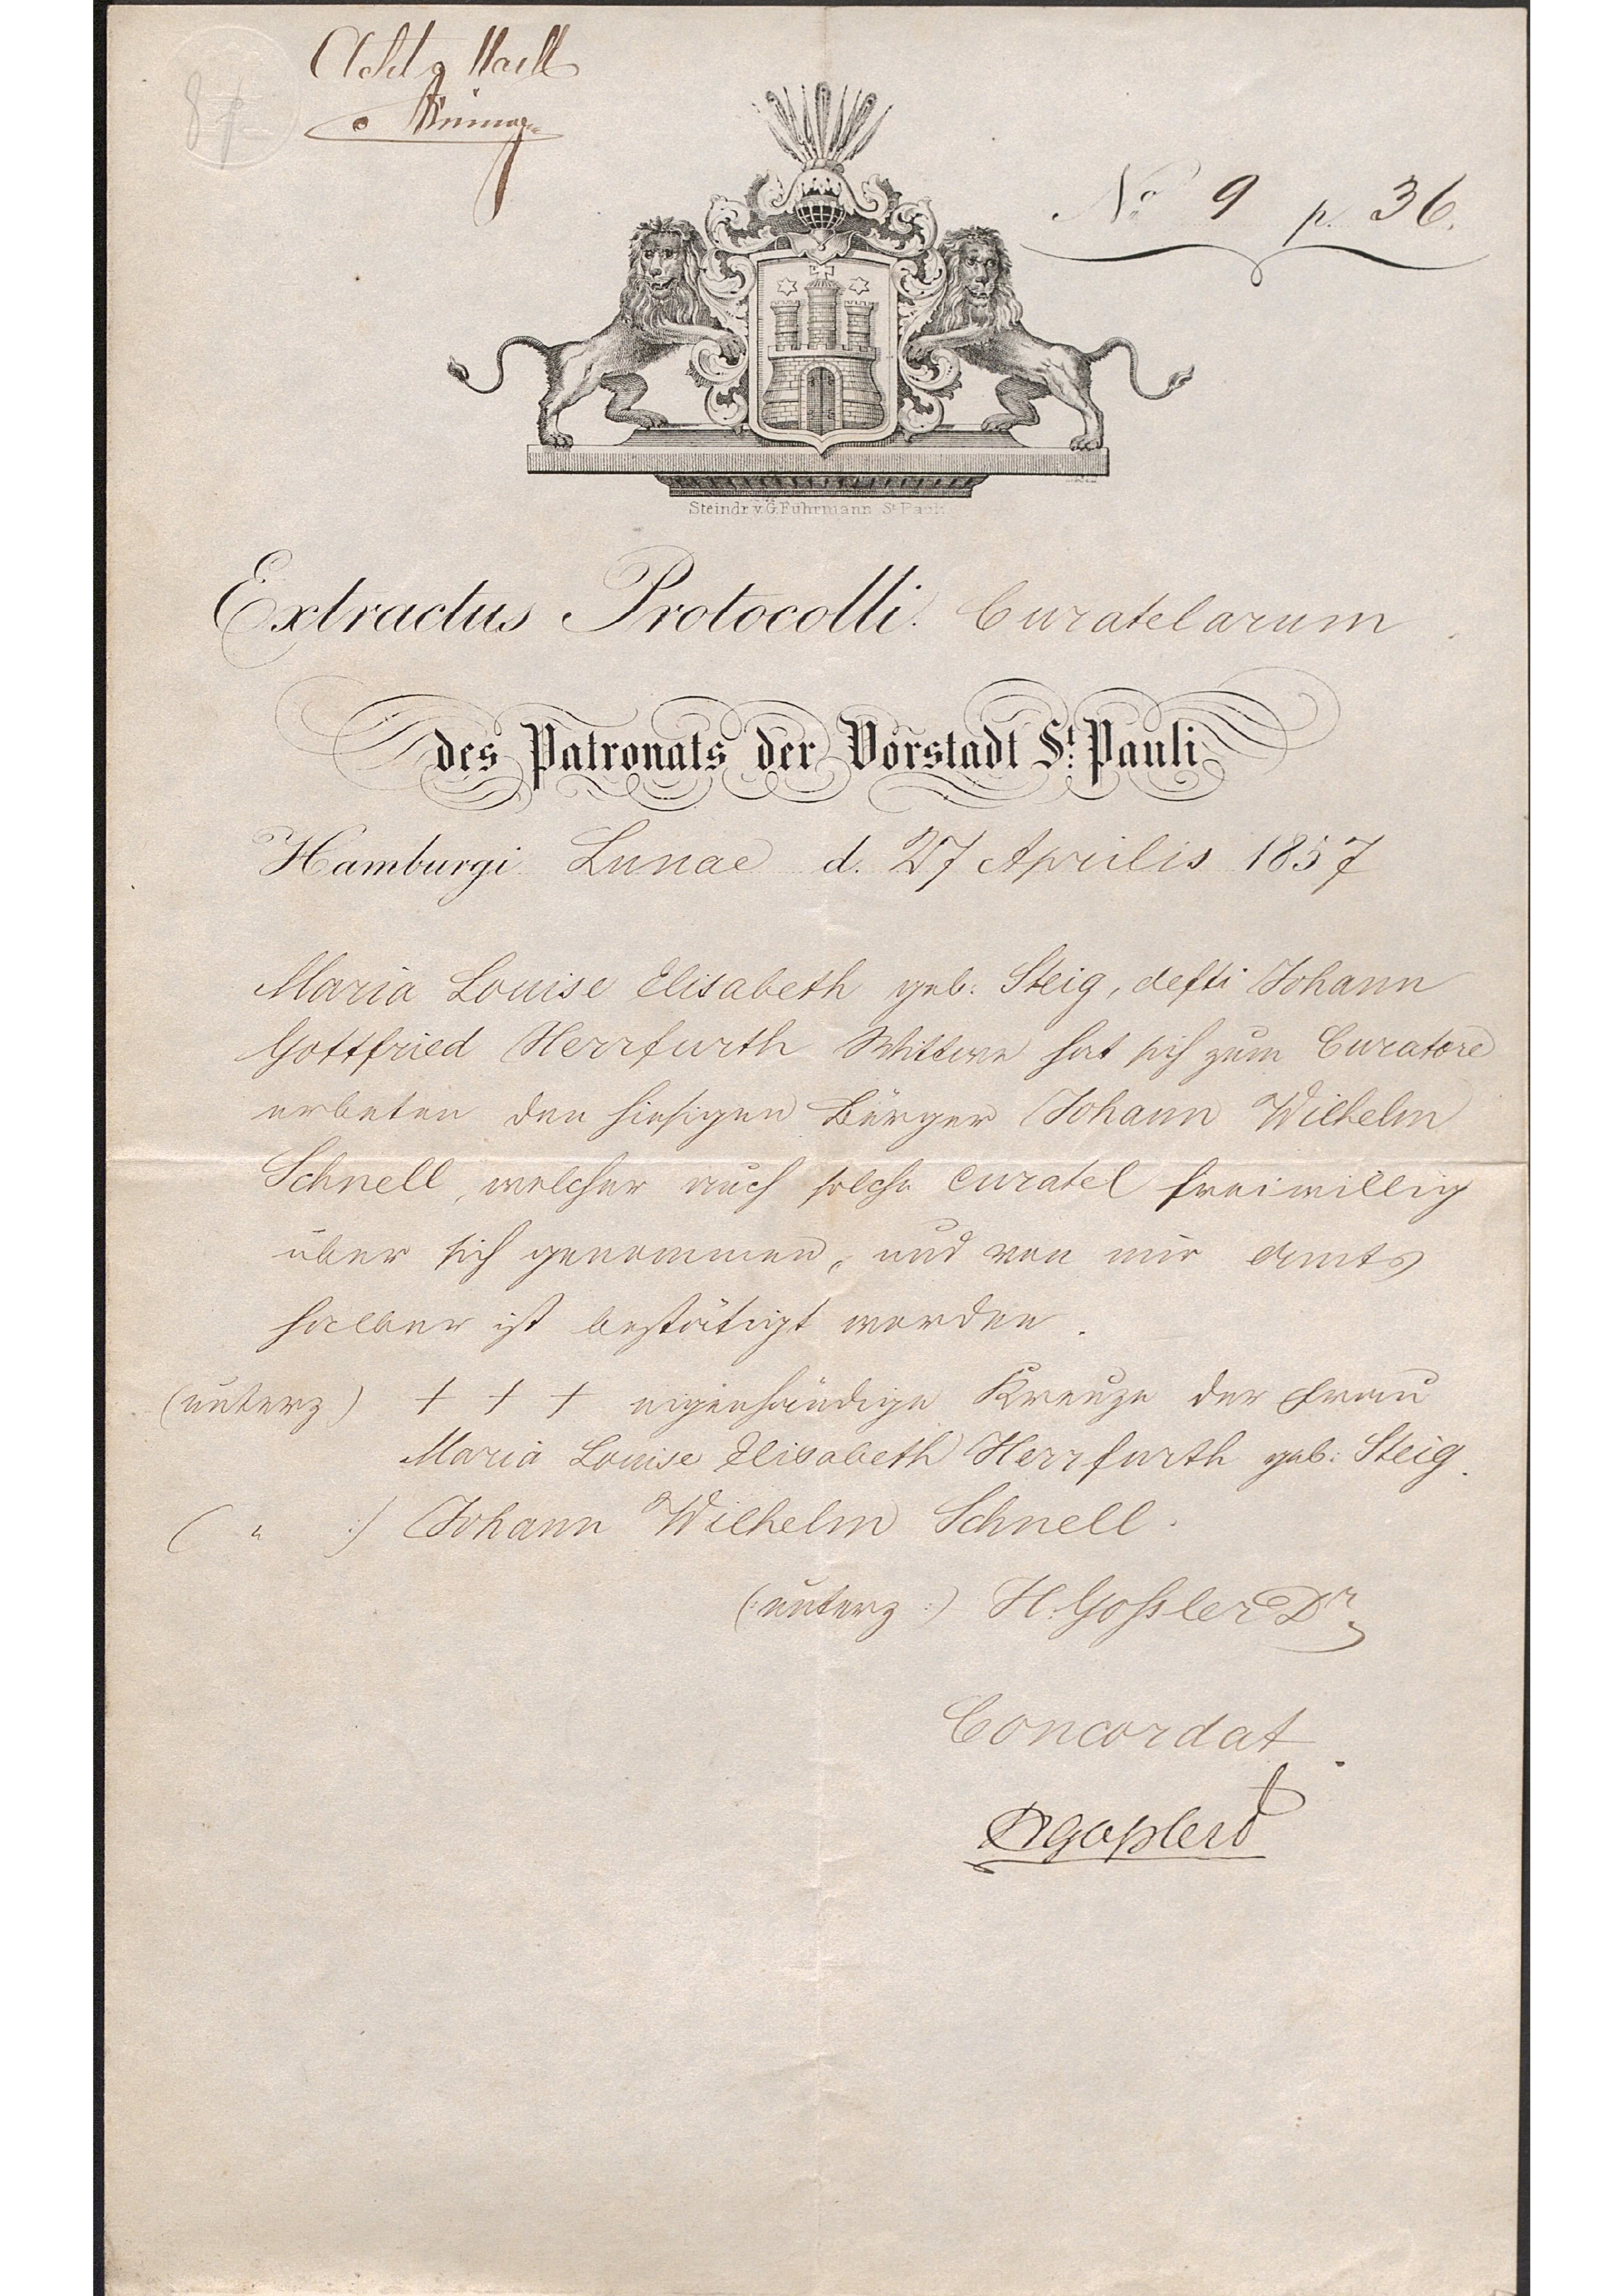 Acht Mark
8
No 9 p. 36.
Steindr. v. G. Fuhrmann St. Pauli
Extractus Protocolli Curatelarum
des Patronats der Vorstadt St. Pauli
Hamburgi Lunae d. 27 Aprilis 1857
Maria Louise Elisabeth geb. Steig, defti Johann
Gottfried Herrfurth Wittwe hat sich zum Curatore
erbeten den hiesigen Bürger Johann Wilhelm
Schnell, welcher auch solche Curatel freiwillig
über sich genommen, und von mir amts
halber ist bestätigt worden.
(unterz) + + + eigenhändige Kreuze der Frau
Maria Louise Elisabeth Herrfurth geb: Steig.
( " :) Johann Wilhelm Schnell.
(:unterz:) H. Gossler Dr
Concordat.
HGossler D